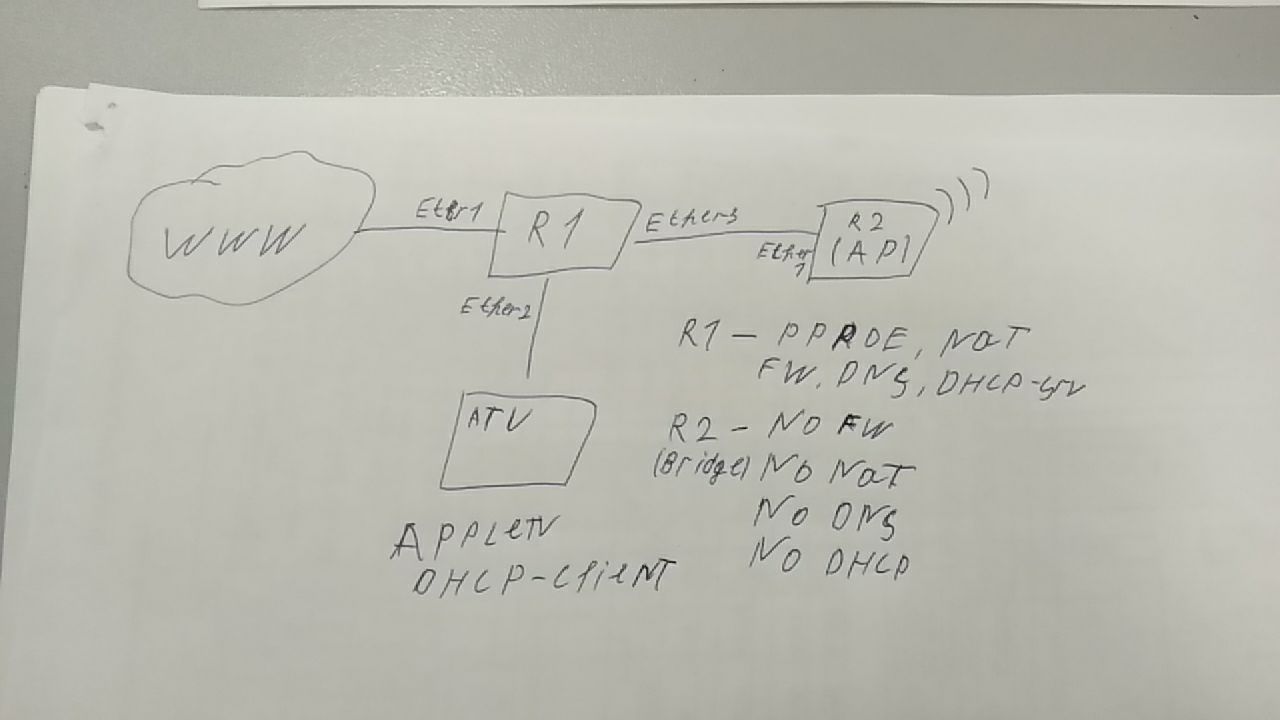 Ether1
R1
Ether3
R2
(AP)
WWW
Ether
1
Ether2
R1 - PPPOE, NAT
FW, DNS, DHCP-srv
ATV
R2 - NO FW
(Bridge) NO NAT
NO DNS
NO DHCP
APPLETV
DHCP-CliENT